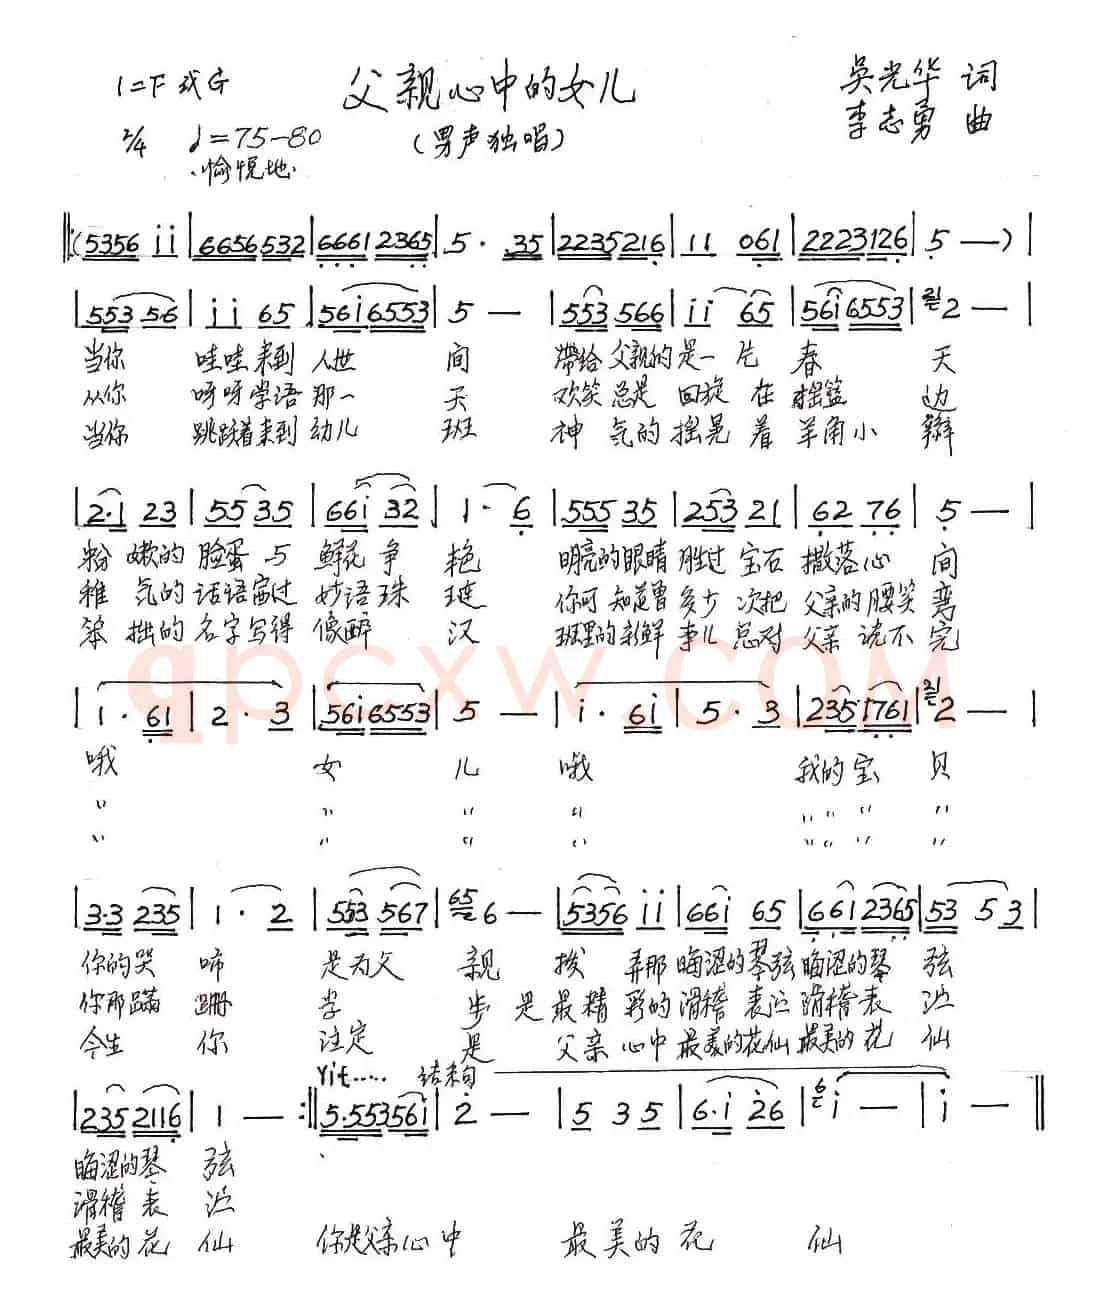 1=F 或G
父亲心中的女儿
吴光华 词
2/4 ♩=75-80
(男声独唱)
李志勇 曲
愉悦地
‖:(5356 i i | 6656 532 | 6661 2365 | 5 · 35 | 2235 216 | 11 061 | 2223 126 | 5 — ) |
| 553 56 | i i 65 | 56i 6553 | 5 — | 553 566 | i i 65 | 56i 6553 | 2 — |
当你 哇哇来到 人世 间 带给 父亲的是一 片 春 天
从你 呀呀学语 那一 天 欢笑 总是 回旋 在 摇篮 边
当你 跳跃着来到 幼儿 班 神 气的 摇晃 着 羊角小 辫
| 2·1 23 | 55 35 | 66i 32 | 1 · 6 | 555 35 | 253 21 | 62 76 | 5 — |
粉 嫩的 脸蛋 与 鲜花 争 艳 明亮的眼睛 胜过 宝石 撒落心 间
稚 气的 话语 富过 妙语 珠 琏 你可 知道曾 多少 次把 父亲的 腰笑 弯
笨 拙的 名字 写得 像醉 汉 班里的新鲜 事儿 总对 父亲 说不 完
qpcxw.com
| 1 · 61 | 2 · 3 | 56i 6553 | 5 — | i · 6i | 5 · 3 | 235 1761 | 2 — |
哦 女 儿 哦 我的 宝 贝
〃 〃 〃 〃 〃 〃 〃 〃
〃 〃 〃 〃 〃 〃 〃 〃
| 3·3 235 | 1 · 2 | 553 567 | 65 6 — | 5356 i i | 66i 65 | 661 2365 | 53 5 3 |
你的哭 啼 是为父 亲 拨 弄那 晦涩的琴弦 晦涩的琴 弦
你那蹒 跚 学 步 是 最 精 彩的 滑稽 表演 滑稽 表 演
今生 你 注定 是 父亲 心中 最美的花仙 最美的 花 仙
Yit..... 结束句
| 235 2116 | 1 — :‖ 5·5 5356i | 2 — | 5 3 5 | 6·i 26 | 6 i — | i — ‖
晦涩的琴 弦
滑稽 表 演
最美的 花 仙 你是父亲心 中 最 美 的 花 仙